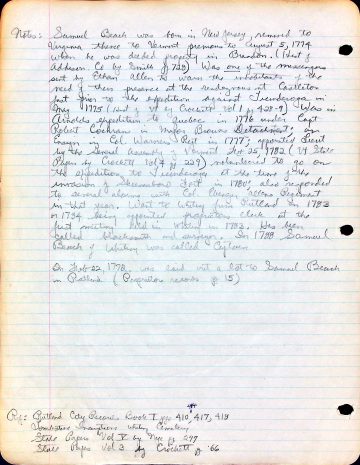 Notes: Samuel Beach was born in New Jersey, removed to
Virginia thence to Vermont previous to August 5, 1774
when he was deeded property in Brandon. (Hist of
Addison Co by Smith p 728) Was one of the messengers
sent by Ethan Allen to warn the inhabitants of the
need of their presence at the rendezvous at Castleton
just prior to the expedition against Ticonderoga in
May 1775 (Hist of Vt by Crockett Vol 1 p. ) Was in
Arnolds expedition to Quebec in 1776 under Capt
Robert Cochran in Majors Browns Detachment, an
Ensign in Col. Warners Regt in 1777; appointed Lieut
by the Council August 25, 1782 (Vt State
Papers by Crockett Vol 4 p 229) volunteered to go on
the expedition to Ticonderoga at the time of the
invasion of Skeensboro Fort in 1780; also responded
to several alarms with Col. Regiment
in that year. Went to Whiting from Rutland in 1783
or 1784 being appointed proprietors clerk at the
first meeting held in Whiting in 1783. Has been
called blacksmith and surveyor. In 1788 Samuel
Beach of Whiting was called Captain
On Feb 22, 1778 was laid out a lot to Samuel Beach
in Rutland (Proprietors records p 15)
Ref: Rutland City Records Book 1 pgs 410, 417, 418
Tombstone Inscriptions Whiting Cemetery
State Papers Vol V by Nye pg 277
State Papers Vol 3 by Crockett pg 66